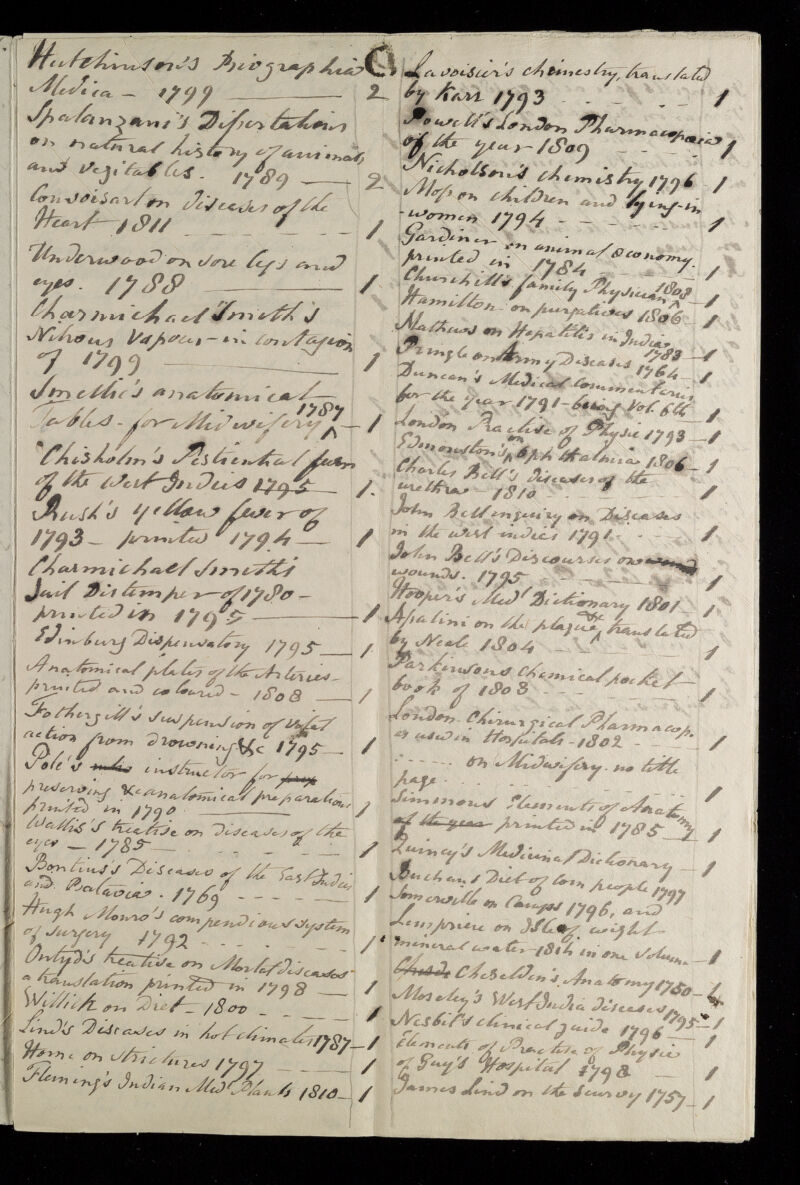 Hutchinson's Biographia
Medica - 1799 2
Spalanzani's Dissertations
on natural history of animals
and vegitables. 1789 2
Corvoisart on Diseases of the
Heart 1811 1
Underwood on sore legs and
eyes. 1788 1
Charmichael Smith's
Nitrous Vapour - in contagion
of 1799 1
Smellie's anatomical
Tables - for Midwifery 1787 1
Chisholm's Pestiential fever
of the West Indies 1795 1
Rush's yellow fever of
1793 - printed 1794 1
Charmichael Smith's
Jail Distemper of 1780 -
printed in 1795 1
Edinburg Dispensatory 1795 1
Anatomical plates of the Arteries -
printed and coloured - 1808 1
Fothergill's suspension of vital
action from drowning &c 1795 1
Pole's instructor for
preserving &c anatomical preparations
printed in 1790 1
Wallis's treatise on diseases of the
eyes - 1785 1
Bontius's Diseases of the East Indies
and Batavia. 1769 1
Hugh Monro's compendious system
of surgery 1792 1
Ontyd's treatise on Mortal diseases
a translation printed in 1798 1
Willich on Diet - 1800 1
Lind's Diseases in hot climates 1787 1
Home on strictures 1797 1
Fleming's Indian Med Plants 1810 1
Lavoisier's chemestry, translated
by Karr 1793 1
Powell's London Pharmacopoeia
of the year 1809 1
Nicholson's chemistry 1796 1
Moss on children and lying-in
-women 1794 1
Gardiner on animal Œconomy
printed in 1784 1
Churchill's family Physician 1808 1
Hamilton on purgatives 1806 1
Mathews on Hepatitis in India
1783 1
Pringle on Army Diseases 1764 1
Duncan's Medical Commentaries
for the year 1791 - being Vol. 6th 1
London Practise of Physic 1793 1
Edmonston's on Ophthalmia 1806 1
Charles Bell's diseases of the
urethra - 1810 1
John Bell enquiry on Diseases
in the west indies 1791 1
John Bell's Discourses on
wounds. 1795 1
Hooper's Med Dictionary 1801 1
Assalini on the plague &c translated
by Neale 1804 1
Parkinsons chemical pocket
book of 1808 1
London Chirurgical Pharmacop.
as used in Hospitals - 1802 1
on Midwifery. no title
page 1
Simmons Elements of Anatomy
of the year printed in 1785 1
Quincy's Medicinal Dictionary 1
Buchans Diet of com people 1797
Somerville on Camps 1796, and
Lempriere on Isle of wight
mineral water 1811 in one volume 1
Cheselden's Anatomy 1750 1
Moseley's West India diseases 1795 1
Nesbit's clinical guide 1796 1
Elements of Practise of Physic
of Guy's Hospital 1798 1
James Lind on the Scurvy 1757 1